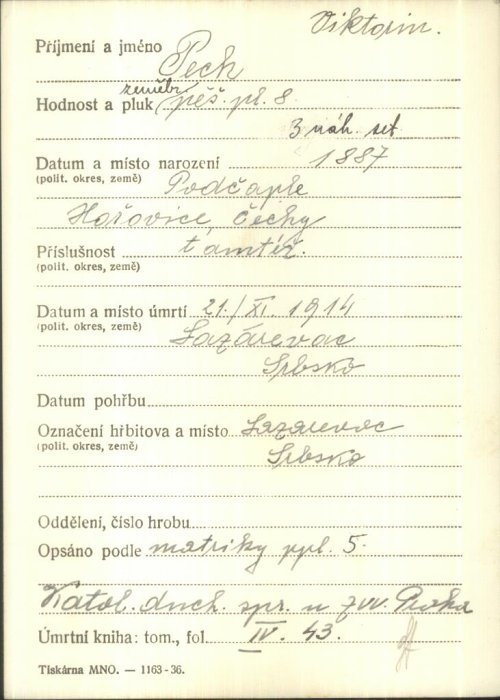 Viktorin.
Příjmení a jméno Pech
zeměbr.
Hodnost a pluk pěš. pl. 8
3 náh. set
Datum a místo narození 1887
(polit. okres, země) Podčaple
Hořovice, Čechy
Příslušnost tamtéž.
(polit. okres, země)
Datum a místo úmrtí 21./XI. 1914
(polit. okres, země) Lazarevac
Srbsko
Datum pohřbu
Označení hřbitova a místo Lazarevac
(polit. okres, země) Srbsko
Oddělení, číslo hrobu
Opsáno podle matriky ppl. 5.
Katol. duch. spr. u zvv. Praha
Úmrtní kniha: tom., fol. IV. 43.
Tiskárna MNO. — 1163-36.